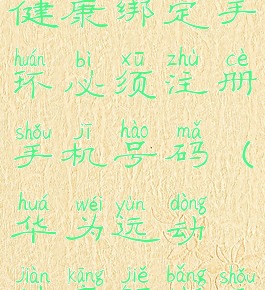 健康绑定手
huán bì xū zhù cè
环必须注册
shǒu jī hào mǎ
手机号码（
huá wèi yùn dòng
华为运动
jiàn kāng jiě bǎng shǒu